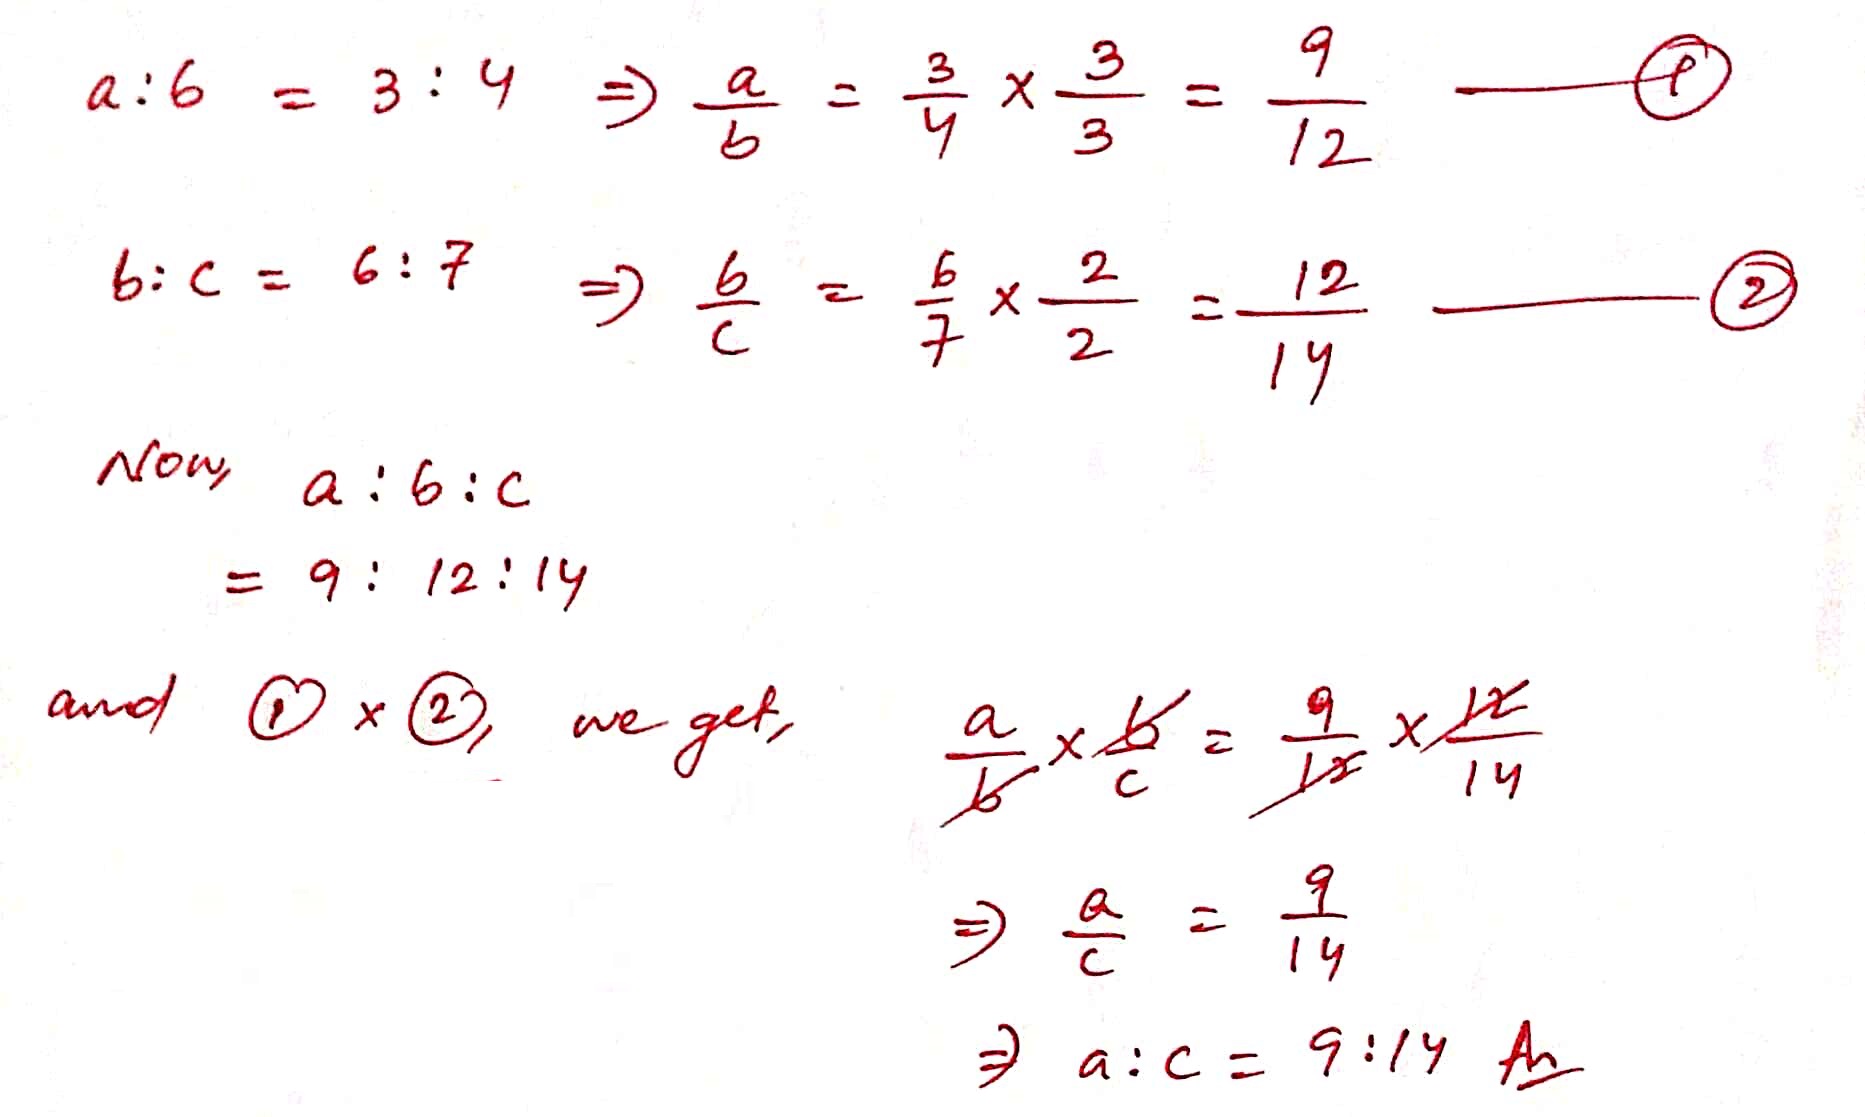 a:b = 3:4 => a/b = 3/4 × 3/3 = 9/12 —— ①
b:c = 6:7 => b/c = 6/7 × 2/2 = 12/14 —— ②
Now, a:b:c
= 9:12:14
and ① × ②, we get, a/b × b/c = 9/12 × 12/14
=> a/c = 9/14
=> a:c = 9:14 An